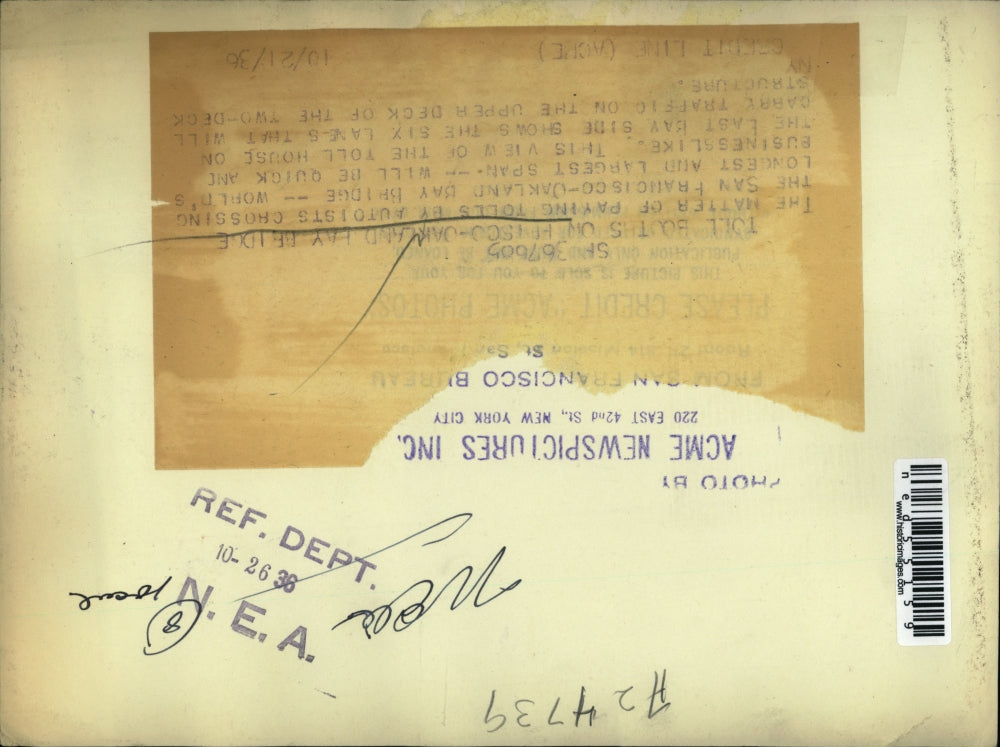 SF 367605
TOLL BOOTHS ON FRISCO-OAKLAND BAY BRIDGE
THE MATTER OF PAYING TOLLS BY AUTOISTS CROSSING
THE SAN FRANCISCO-OAKLAND BAY BRIDGE -- WORLD'S
LONGEST AND LARGEST SPAN -- WILL BE QUICK AND
BUSINESSLIKE. THIS VIEW OF THE TOLL HOUSE ON
THE EAST BAY SIDE SHOWS THE SIX LANES THAT WILL
CARRY TRAFFIC ON THE UPPER DECK OF THE TWO-DECK
STRUCTURE.
NY
CREDIT LINE (ACME) 10/21/36
PHOTO BY
ACME NEWSPICTURES INC.
220 EAST 42nd St., NEW YORK CITY
FROM SAN FRANCISCO BUREAU
PLEASE CREDIT "ACME PHOTOS"
THIS PICTURE IS SOLD TO YOU FOR YOUR
PUBLICATION ONLY AND MUST NOT BE LOANED
REF. DEPT.
10-26 36
N. E. A.
8
#24739
ned55159
www.historicimages.com